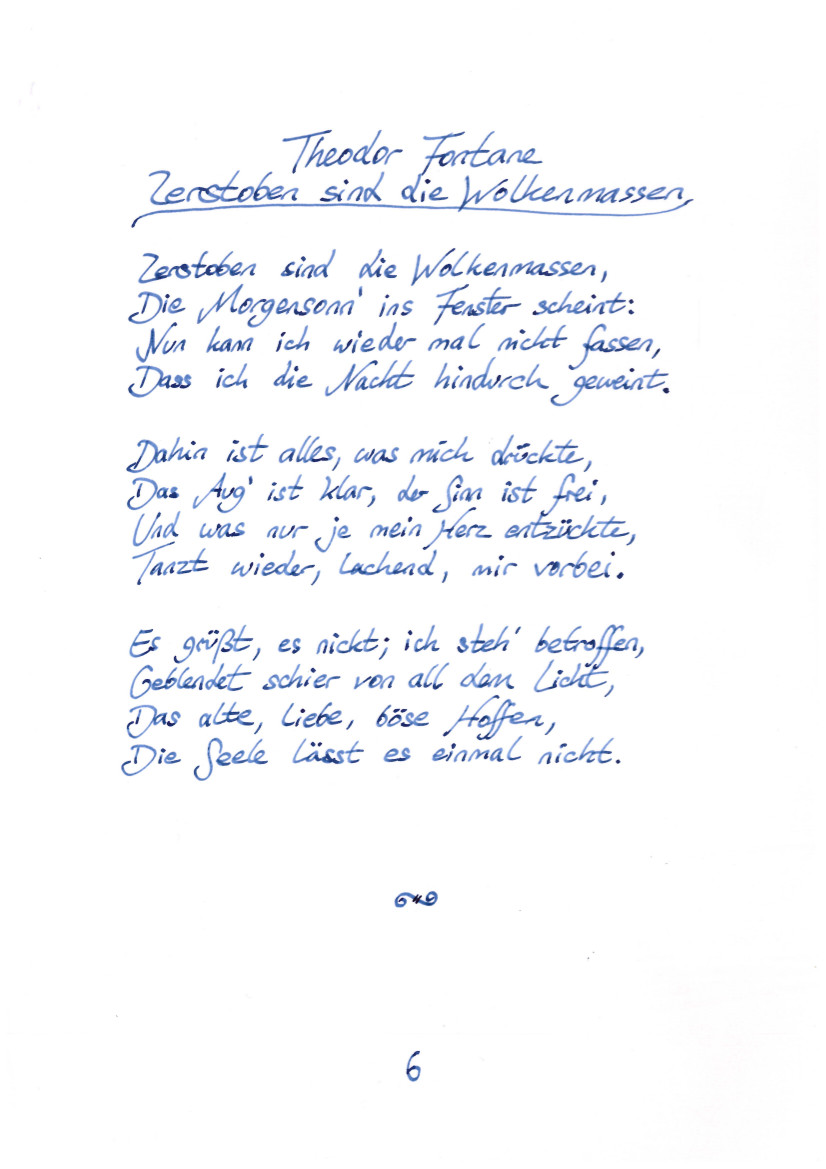 Theodor Fontane
Zerstoben sind die Wolkenmassen,
Zerstoben sind die Wolkenmassen,
Die Morgensonn' ins Fenster scheint:
Nun kann ich wieder mal nicht fassen,
Dass ich die Nacht hindurch geweint.
Dahin ist alles, was mich drückte,
Das Aug' ist klar, der Sinn ist frei,
Und was nur je mein Herz entzückte,
Tanzt wieder, lachend, mir vorbei.
Es grüßt, es nickt; ich steh' betroffen,
Geblendet schier von all dem Licht,
Das alte, liebe, böse Hoffen,
Die Seele lässt es einmal nicht.
6